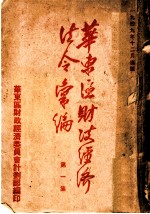 一九四九年十二月編
華東区財政經济
法令彙編
第一集
華東區財政經濟委員會計劃部編印